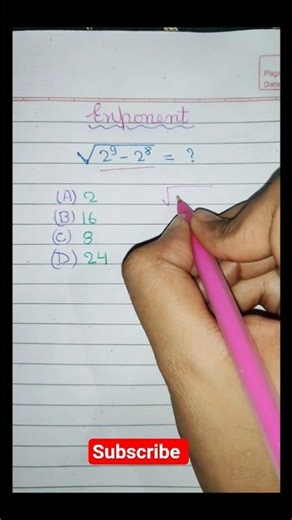 Page
Date
Exponent
√2⁹ - 2⁸ = ?
(A) 2
(B) 16
(C) 8
(D) 24
√
Subscribe